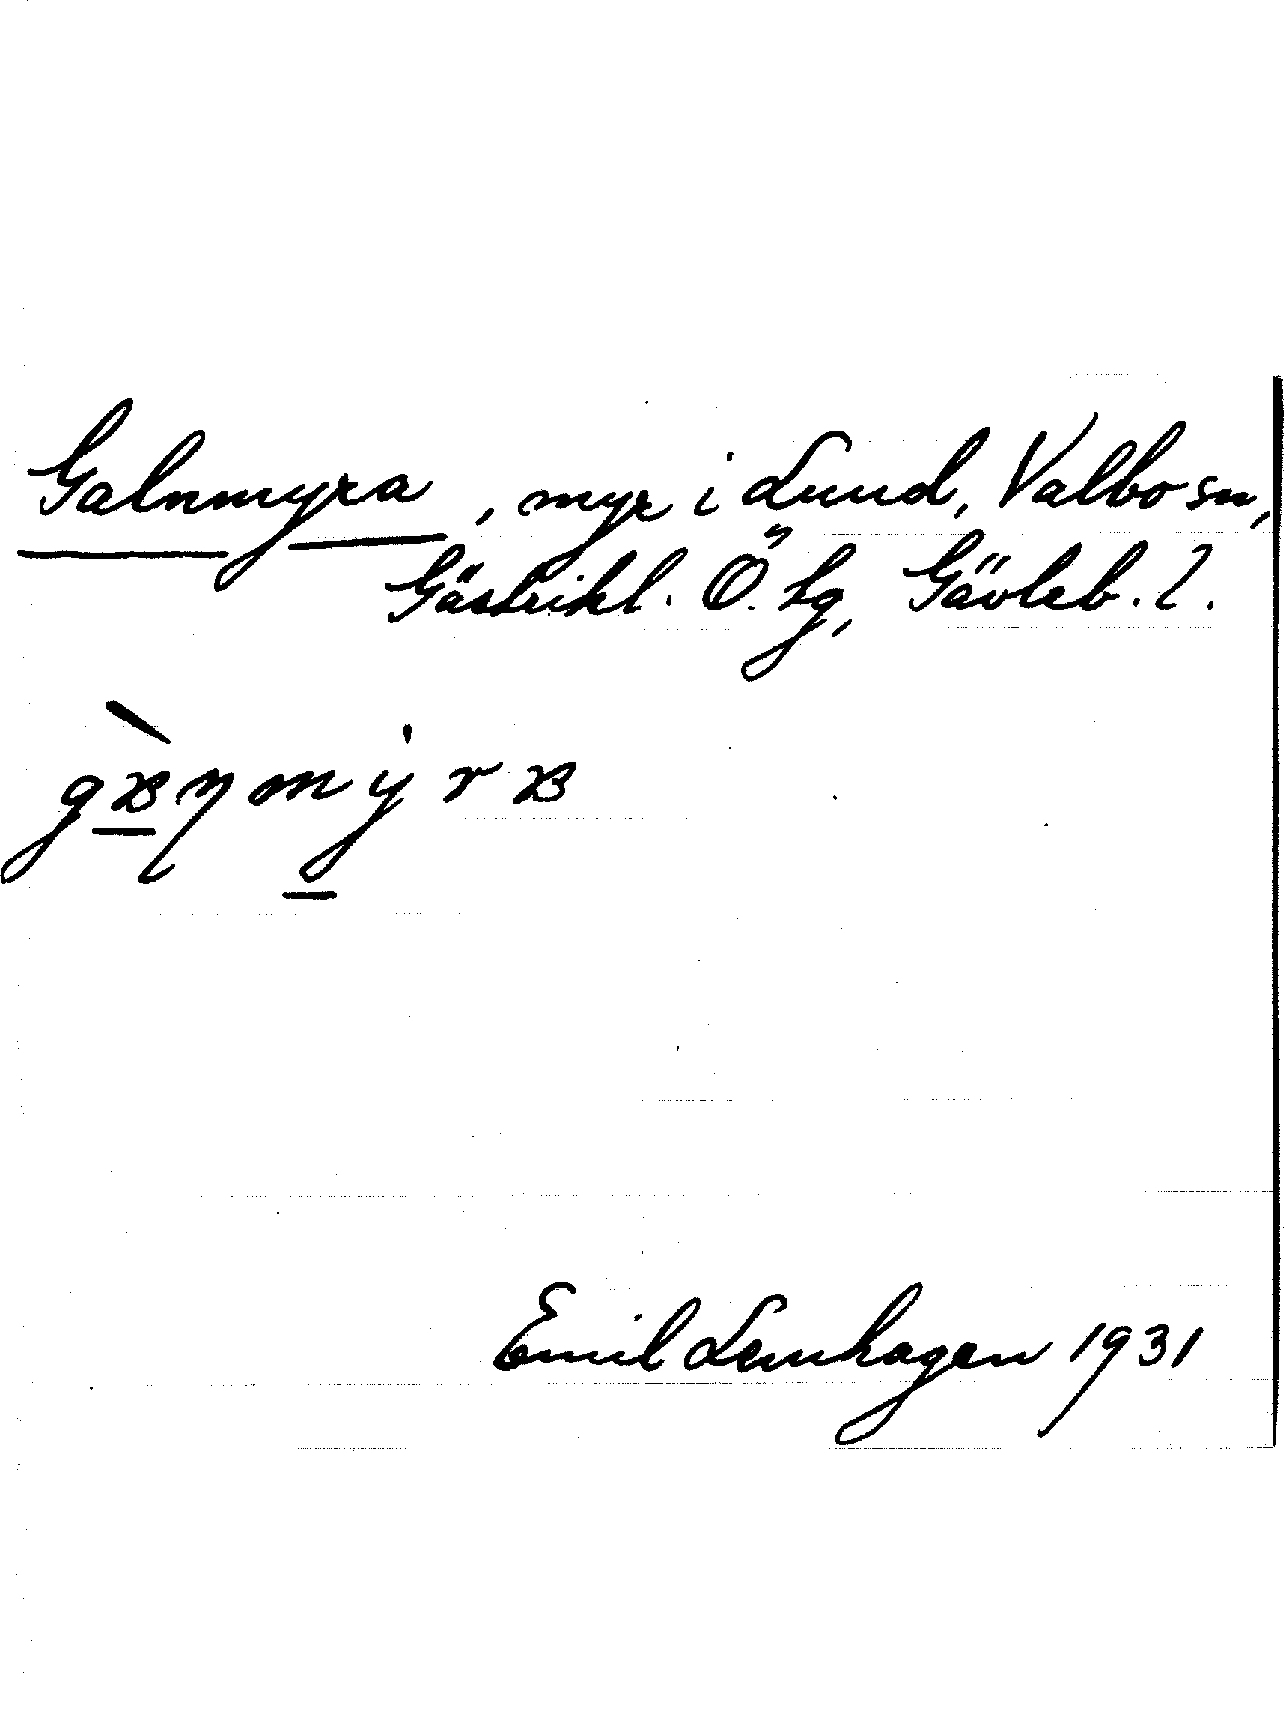 Galnmyra, myr i Lund, Valbo sn,
Gästrikl. Ö. tg, Gävleb. l.
Emil Lenhagen 1931